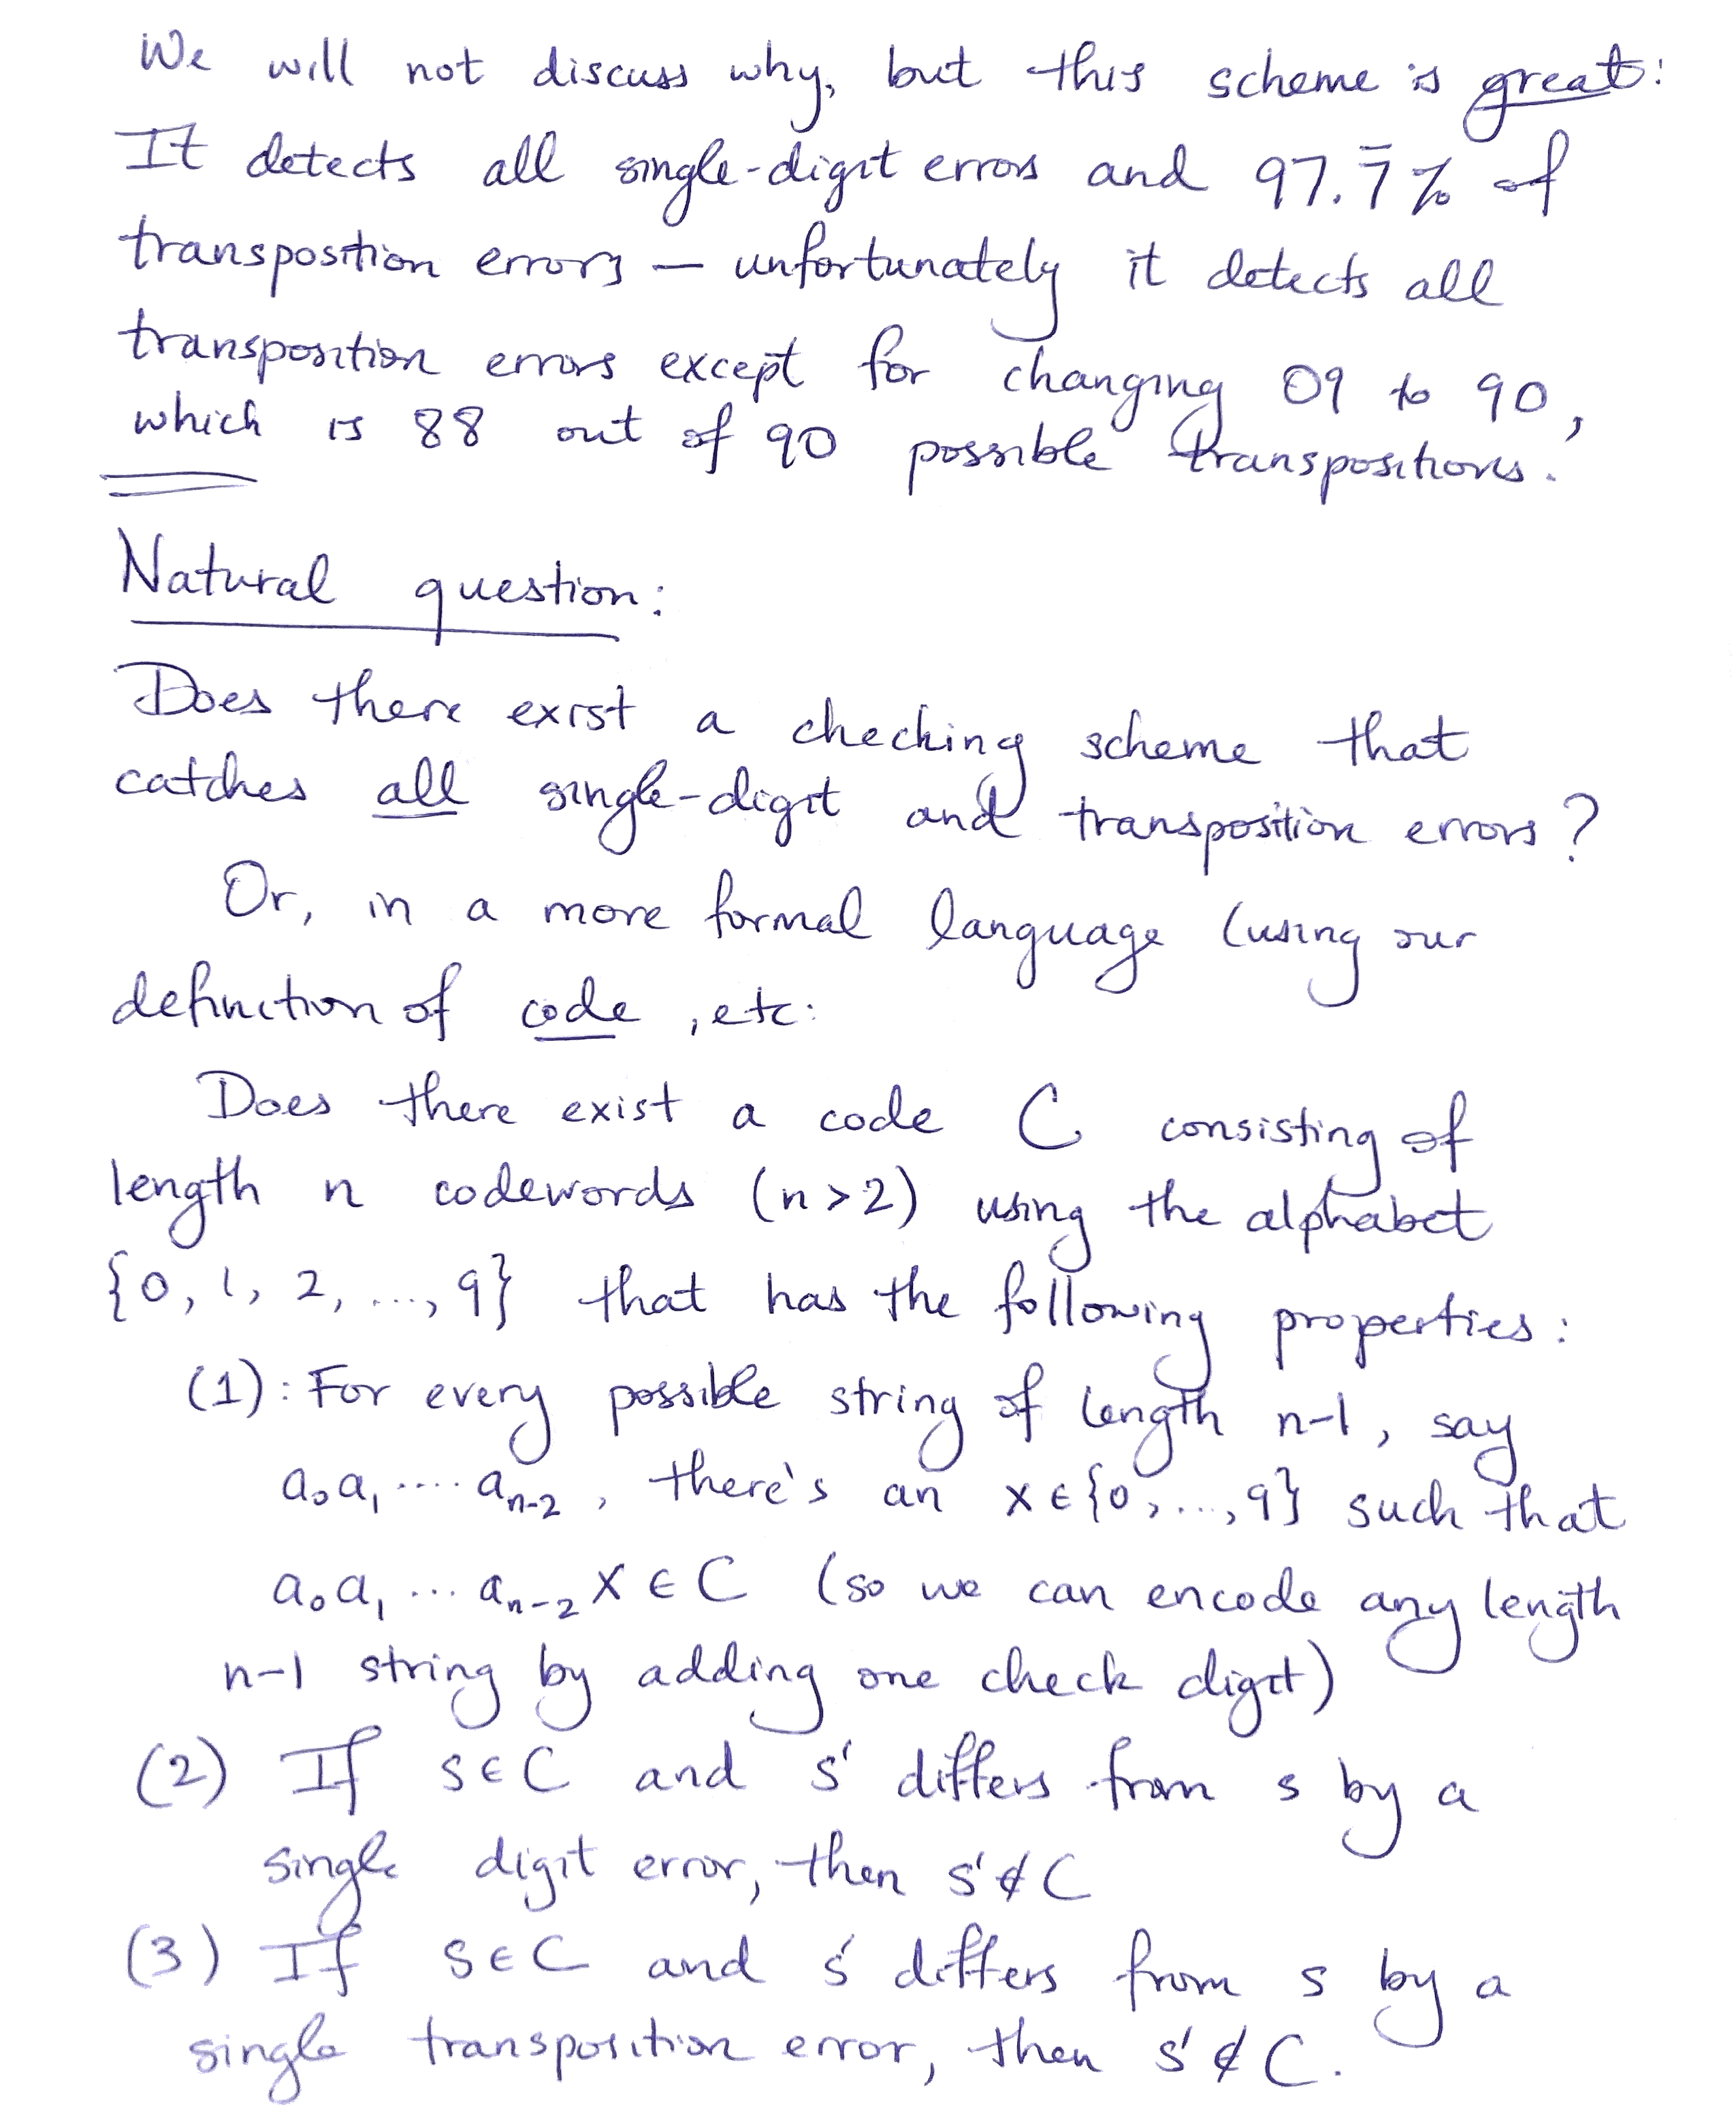 We will not discuss why, but this scheme is great:
It detects all single-digit errors and 97.7̅% of
transposition errors — unfortunately it detects all
transposition errors except for changing 09 to 90,
which is 88 out of 90 possible transpositions.
Natural question:
Does there exist a checking scheme that
catches all single-digit and transposition errors?
Or, in a more formal language (using our
definition of code, etc:
Does there exist a code C consisting of
length n codewords (n>2) using the alphabet
{0, 1, 2, ..., 9} that has the following properties:
(1): For every possible string of length n-1, say
a₀a₁ ···· aₙ₋₂, there's an x ∈ {0, ..., 9} such that
a₀a₁ ... aₙ₋₂ x ∈ C (so we can encode any length
n-1 string by adding one check digit)
(2) If s ∈ C and s' differs from s by a
single digit error, then s' ∉ C
(3) If s ∈ C and s' differs from s by a
single transposition error, then s' ∉ C.